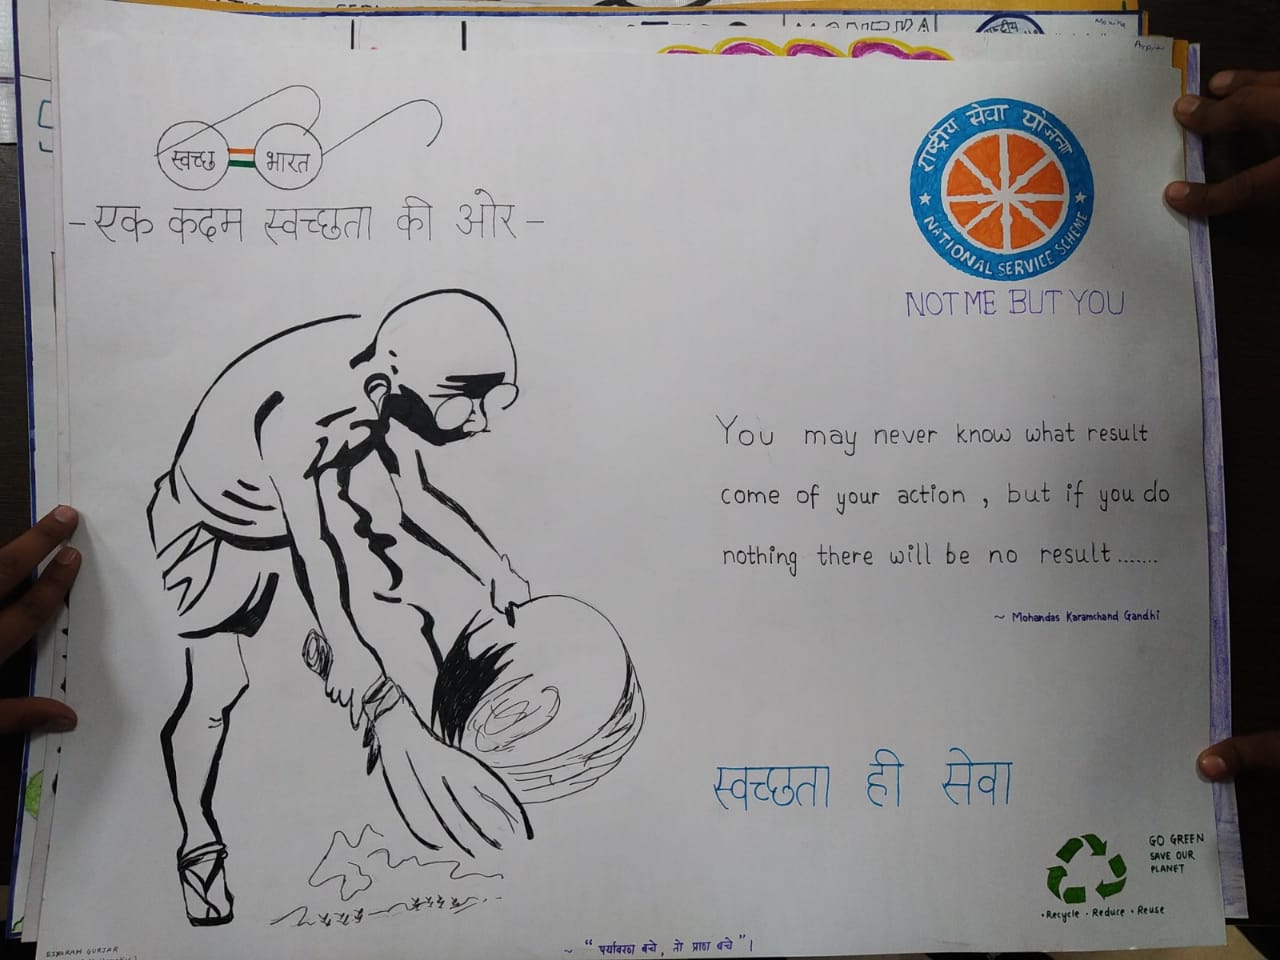 Monika
Arpit
स्वच्छ भारत
- एक कदम स्वच्छता की ओर -
राष्ट्रीय सेवा योजना
NATIONAL SERVICE SCHEME
NOT ME BUT YOU
You may never know what result
come of your action , but if you do
nothing there will be no result.......
~ Mohandas Karamchand Gandhi
स्वच्छता ही सेवा
GO GREEN
SAVE OUR
PLANET
• Recycle • Reduce • Reuse
~ “ पर्यावरण बचे , तो प्राण बचे ” ।